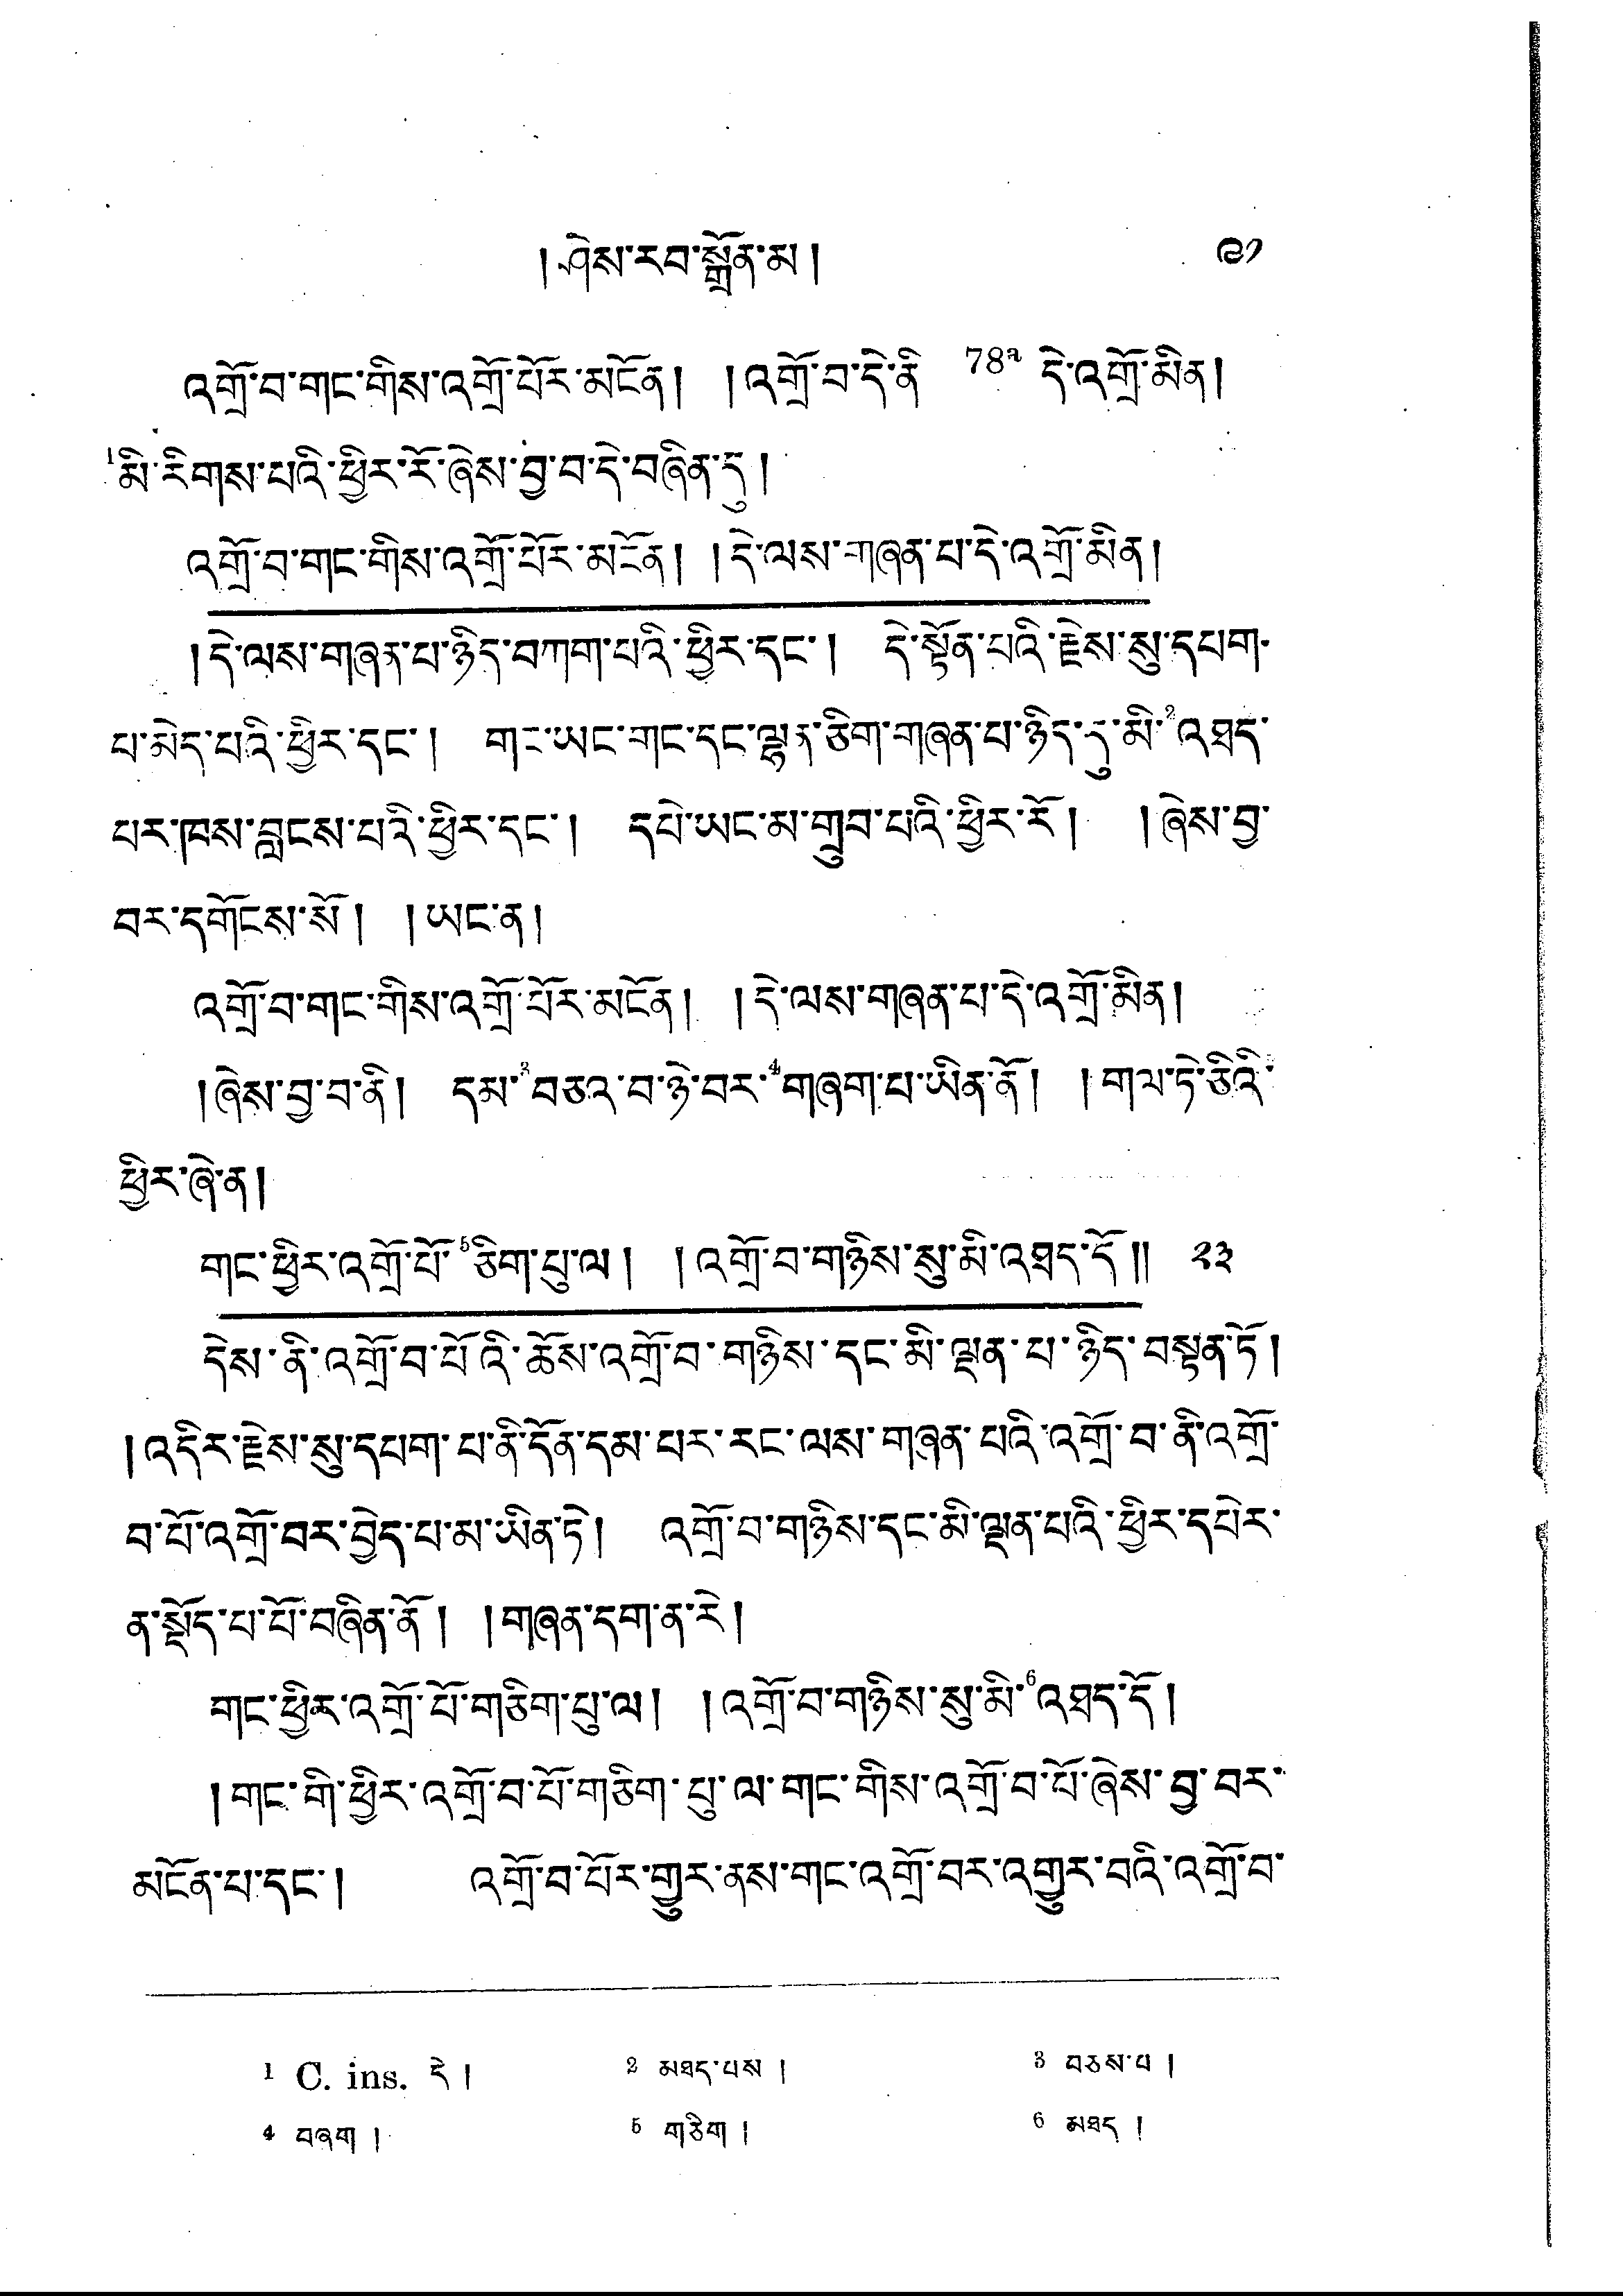 ། ཤེས་རབ་སྒྲོན་མ །
༩༡
འགྲོ་བ་གང་གིས་འགྲོ་པོར་མངོན། །འགྲོ་བ་དེ་ནི 78a དེ་འགྲོ་མིན།
1མི་རིགས་པའི་ཕྱིར་རོ་ཞེས་བྱ་བ་དེ་བཞིན་དུ །
འགྲོ་བ་གང་གིས་འགྲོ་པོར་མངོན། །དེ་ལས་གཞན་པ་དེ་འགྲོ་མིན།
།དེ་ལས་གཞན་པ་ཉིད་བཀག་པའི་ཕྱིར་དང་། དེ་སྟོན་པའི་རྗེས་སུ་དཔག་
པ་མེད་པའི་ཕྱིར་དང་། གང་ཡང་གང་དང་ལྷན་ཅིག་གཞན་པ་ཉིད་དུ་མི་2འཐད་
པར་ཁས་བླངས་པའི་ཕྱིར་དང་། དཔེ་ཡང་མ་གྲུབ་པའི་ཕྱིར་རོ། །ཞེས་བྱ་
བར་དགོངས་སོ། །ཡང་ན།
འགྲོ་བ་གང་གིས་འགྲོ་པོར་མངོན། །དེ་ལས་གཞན་པ་དེ་འགྲོ་མིན།
།ཞེས་བྱ་བ་ནི། དམ་3བཅའ་བ་ཉེ་བར་4གཞག་པ་ཡིན་ནོ། །གལ་ཏེ་ཅིའི་
ཕྱིར་ཞེ་ན།
གང་ཕྱིར་འགྲོ་པོ་5ཅིག་པུ་ལ། །འགྲོ་བ་གཉིས་སུ་མི་འཐད་དོ།། ༢༣
དེས་ནི་འགྲོ་བ་པོའི་ཆོས་འགྲོ་བ་གཉིས་དང་མི་ལྡན་པ་ཉིད་བསྟན་ཏོ།
།འདིར་རྗེས་སུ་དཔག་པ་ནི་དོན་དམ་པར་རང་ལས་གཞན་པའི་འགྲོ་བ་ནི་འགྲོ་
བ་པོ་འགྲོ་བར་བྱེད་པ་མ་ཡིན་ཏེ། འགྲོ་བ་གཉིས་དང་མི་ལྡན་པའི་ཕྱིར་དཔེར་
ན་སྡོད་པ་པོ་བཞིན་ནོ། །གཞན་དག་ན་རེ།
གང་ཕྱིར་འགྲོ་པོ་གཅིག་པུ་ལ། །འགྲོ་བ་གཉིས་སུ་མི་6འཐད་དོ།
།གང་གི་ཕྱིར་འགྲོ་བ་པོ་གཅིག་པུ་ལ་གང་གིས་འགྲོ་བ་པོ་ཞེས་བྱ་བར་
མངོན་པ་དང་། འགྲོ་བ་པོར་གྱུར་ནས་གང་འགྲོ་བར་འགྱུར་བའི་འགྲོ་བ་
1 C. ins. དེ། 2 མཐད་པས། 3 བཅས་པ།
4 བཞག། 5 གཅིག། 6 མཐད།